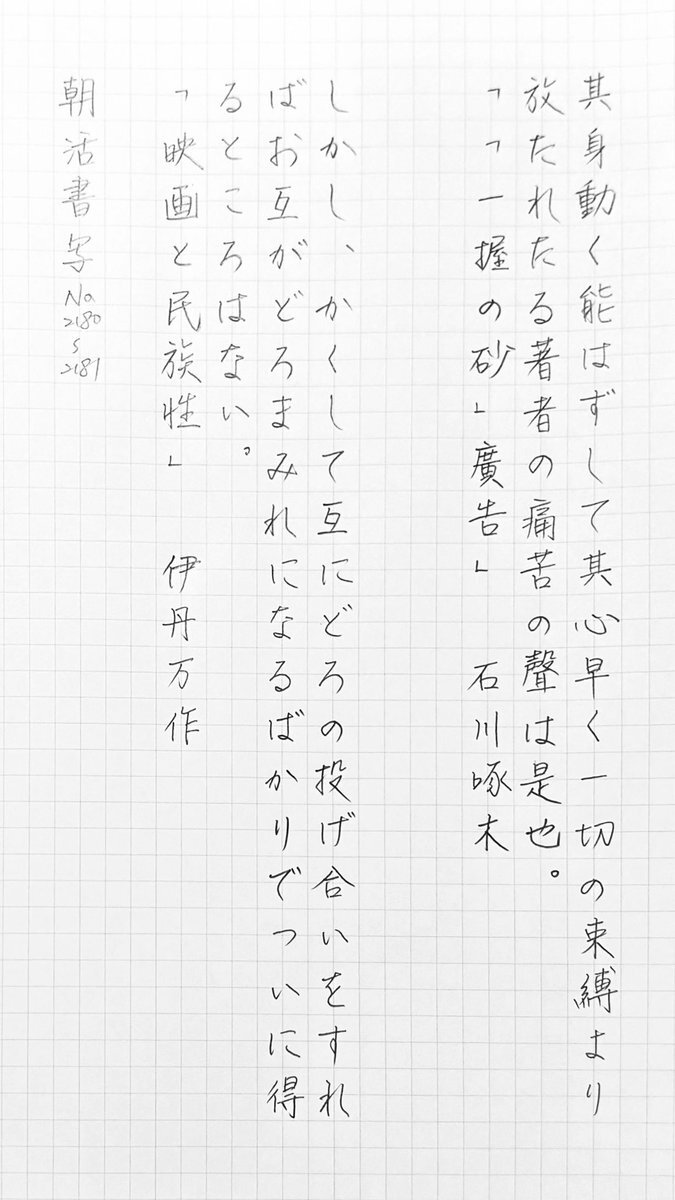 其身動く能はずして其心早く一切の束縛より
放たれたる著者の痛苦の聲は是也。
「「一握の砂」廣告」 石川啄木
しかし、かくして互にどろの投げ合いをすれ
ばお互がどろまみれになるばかりでついに得
るところはない。
「映画と民族性」 伊丹万作
朝活書写 No 2180 〜 2181